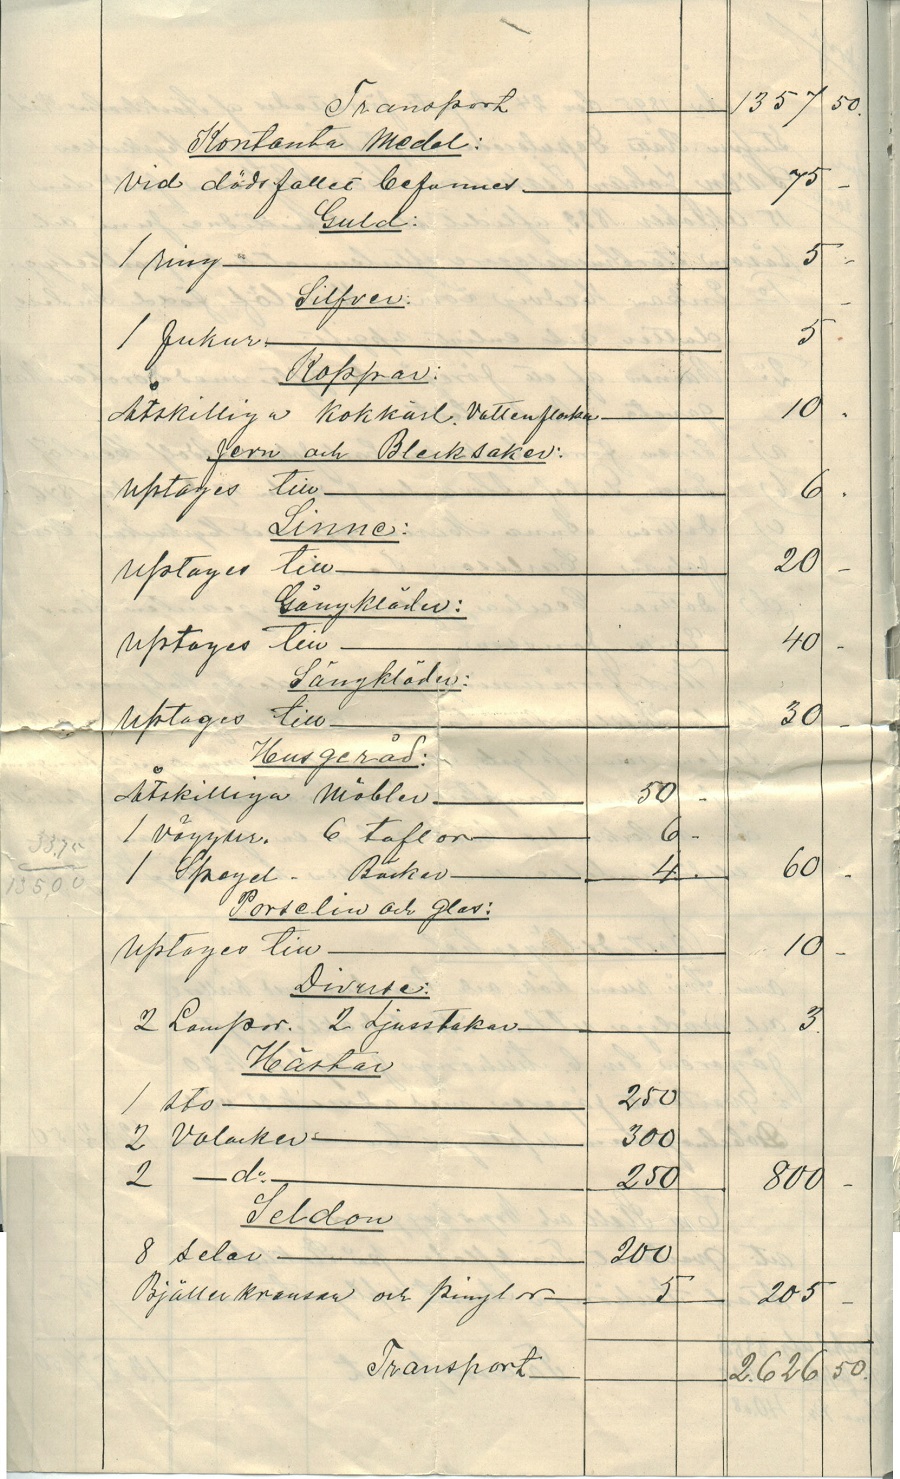 Transport 1357 50.
Kontanta Medel:
Vid dödsfallet befunnes 75 -
Guld:
1 ring 5 -
Silfver:
1 fickur 5
Koppar:
Åtskilliga Kokkärl. Vattenflaska 10 .
Jern och Blecksaker:
Uptages till 6 .
Linne:
Uptages till 20 -
Gångkläder:
Uptages till 40 -
Sängkläder:
Uptages till 30 -
Husgeråd:
Åtskilliga Möbler 50 -
1 Väggur. 6 taflor 6 -
33.75
1 Spegel - Böcker 4 . 60 -
135,00
Porselin och glas:
Uptages till 10 -
Diverse:
2 Lampor. 2 Ljusstakar 3.
Hästar
1 sto 250
2 Valacker 300
2 - do. 250 800 -
Seldon
8 selar 200
Bjällerkransar och pinglor 5 205 -
Transport 2.626 50.